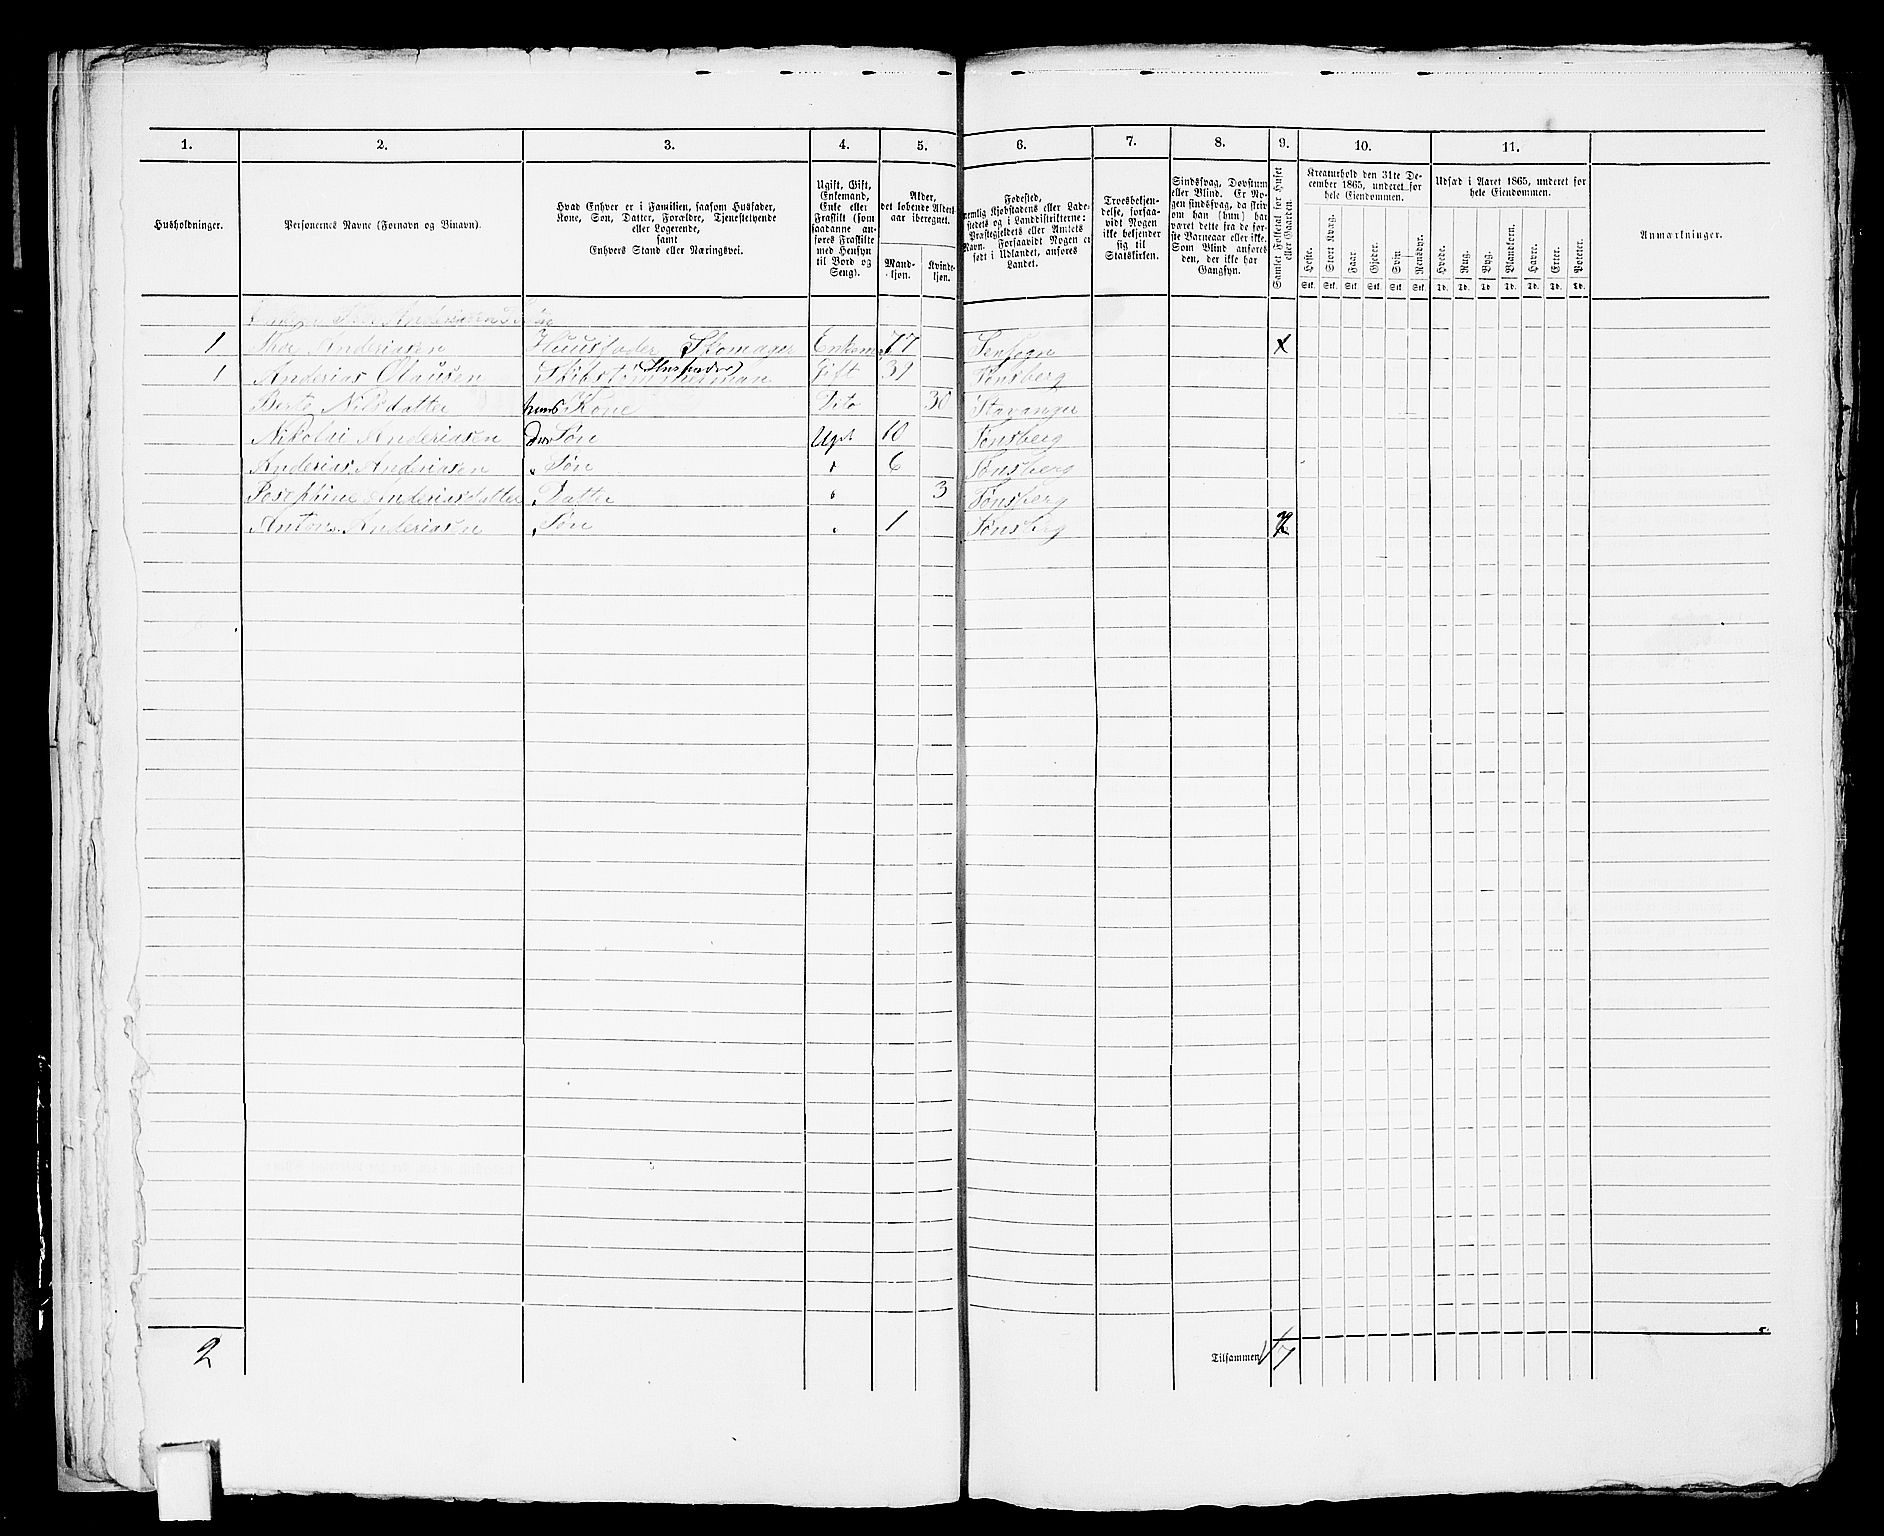 1. 2. 3. 4. 5. 6. 7. 8. 9. 10. 11.
Husholdninger.
Personernes Navne (Fornavn og Binavn).
Hvad Enhver er i Familien, saasom Husfader,
Kone, Søn, Datter, Forældre, Tjenestetyende
eller Logerende,
samt
Enhvers Stand eller Næringsvei.
Ugift, Gift,
Enkemand,
Enke eller
Fraskilt (som
saadanne an-
føres Fraskilte
med Hensyn
til Bord og
Seng).
Alder,
det løbende Alders-
aar iberegnet.
Mand-
kjøn.
Kvinde-
kjøn.
Fødested,
nemlig Kjøbstadens eller Lade-
stedets og i Landdistrikterne:
Præstegjeldets eller Amtets
Navn. Forsaavidt Nogen er
født i Udlandet, anføres
Landet.
Troesbekjen-
delse, forsaa-
vidt Nogen
ikke bekjender
sig til
Statskirken.
Sindssvag, Døvstum
eller Blind. Er No-
gen sindssvag, da skriv
om han (hun) har
været dette fra de før-
ste Barneaar eller ikke.
Som Blind anføres
den, der ikke har
Gangsyn.
Samlet Folketal for Huset
eller Gaarden.
Kreaturhold den 31te De-
cember 1865, underet for
hele Eiendommen.
Heste. Stort Kvæg. Faar. Gjeder. Svin. Rensdyr.
Stk. Stk. Stk. Stk. Stk. Stk.
Udsæd i Aaret 1865, underet for
hele Eiendommen.
Hvede. Rug. Byg. Blandkorn. Havre. Erter. Poteter.
Td. Td. Td. Td. Td. Td. Td.
Anmærkninger.
1 Anderiasen Huusfader Skomager Enkem 77 Sem Sogn
1 Anderias Olausen Skibstømmerman (Husfader) Gift 31 Tønsberg
Berte Nilsdatter hans Kone Dito 30 Stavanger
Nikolai Anderiasen Søn Ugift 10 Tønsberg
Anderias Anderiasen Søn " 6 Tønsberg
Josephine Anderiasdatter Datter " 3 Tønsberg
Anton Anderiasen Søn " 1 Tønsberg
2
Tilsammen 7